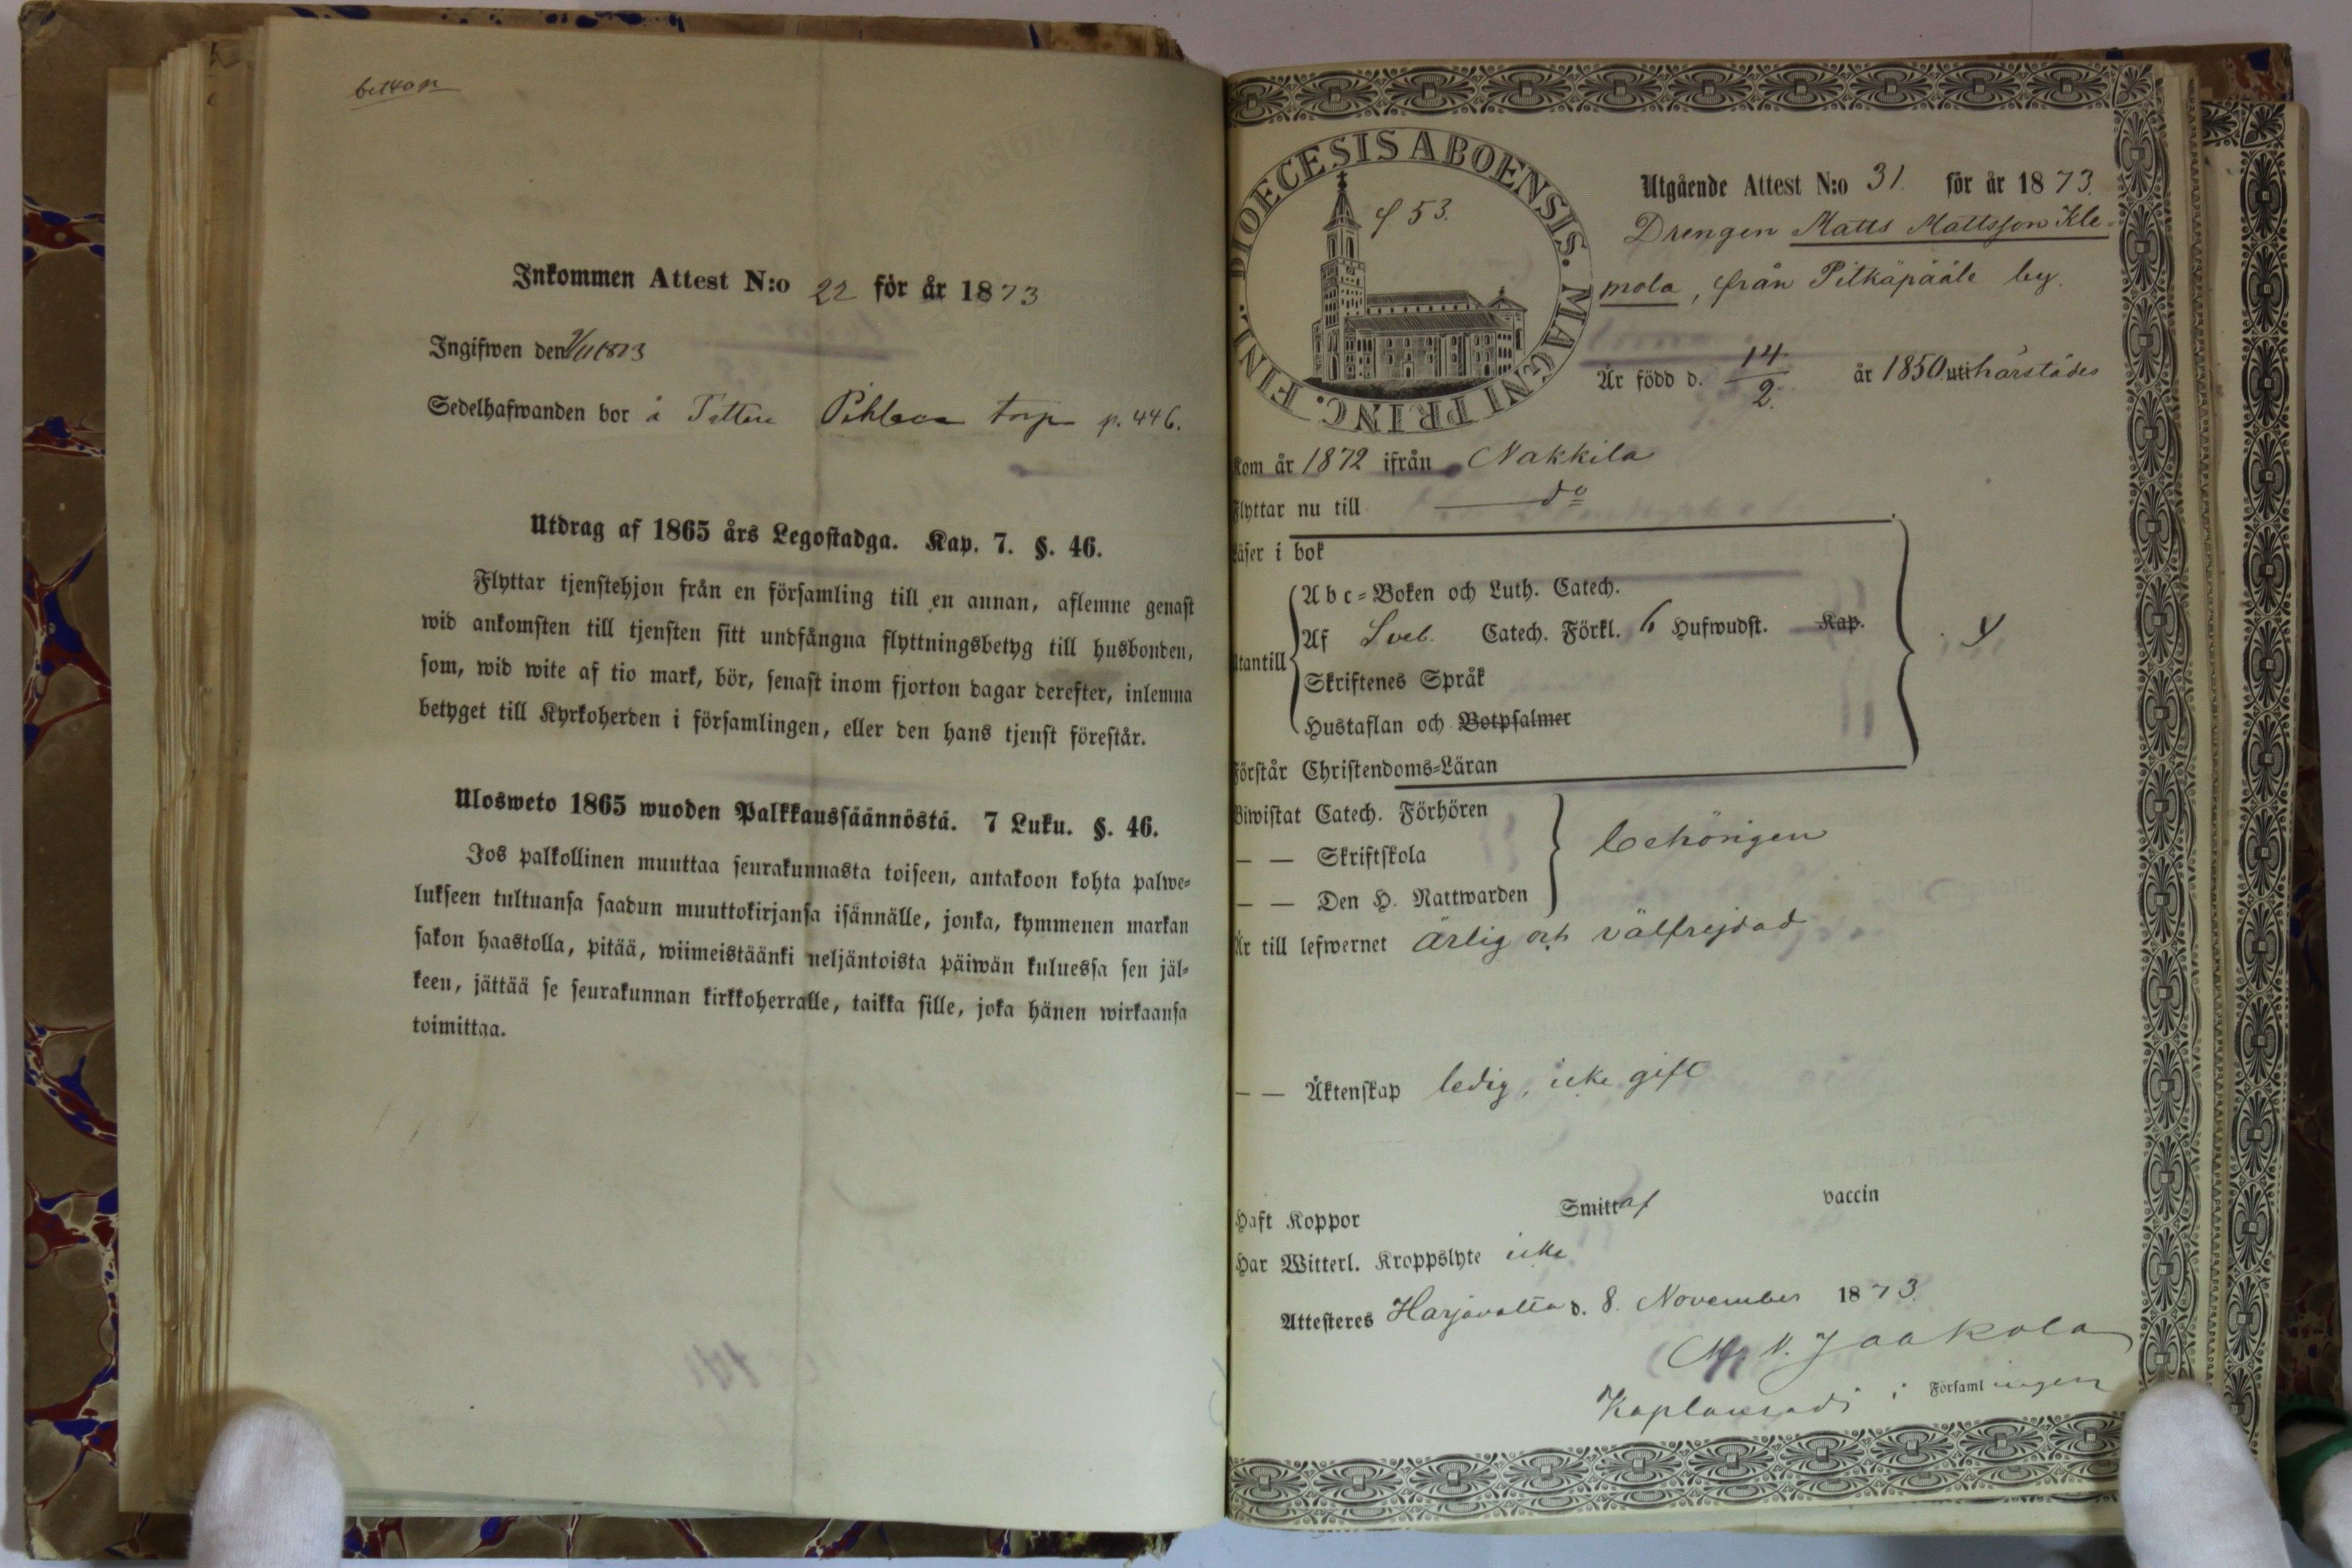 Inkommen Attest N:o 22 för år 1873
Ingifwen den /11 1873
Sedelhafwanden bor å Torp p. 446.
Utdrag af 1865 års Legostadga. Kap. 7. §. 46.
Flyttar tjenstehjon från en församling till en annan, aflemne genast
wid ankomsten till tjensten sitt undfångna flyttningsbetyg till husbonden,
som, wid wite af tio mark, bör, senast inom fjorton dagar derefter, inlemna
betyget till Kyrkoherden i församlingen, eller den hans tjenst förestår.
Ulosweto 1865 wuoden Palkkaussäännöstä. 7 Luku. §. 46.
Jos palkollinen muuttaa seurakunnasta toiseen, antakoon kohta palwe-
lukseen tultuansa saadun muuttokirjansa isännälle, jonka, kymmenen markan
sakon haastolla, pitää, wiimeistäänki neljäntoista päiwän kuluessa sen jäl-
keen, jättää se seurakunnan kirkkoherralle, taikka sille, joka hänen wirkaansa
toimittaa.
DIOECESIS ABOENSIS. MAGNI PRINC. FINL.
f 53.
Utgående Attest N:o 31. för år 1873.
Drengen Matts Mattsson Kle-
mola, från Pitkäpääle by.
Är född d. 14/2. år 1850 uti härstädes
Kom år 1872 ifrån Nakkila
Flyttar nu till do
Läser i bok
Utantill
Abc-Boken och Luth. Catech.
Af Sveb. Catech. Förkl. 6 Hufwudst. Kap.
Skriftenes Språk
Hustaflan och Botpsalmer
Förstår Christendoms-Läran
Biwistat Catech. Förhören
— — Skriftskola behörigen
— — Den H. Nattwarden
Är till lefwernet ärlig och välfrejdad
— — Äktenskap ledig, icke gift
Haft Koppor Smitt af vaccin
Har Witterl. Kroppslyte icke
Attesteres Harjavalta d. 8. November 1873.
N. Jaakola
Kaplansadj i Församlingen